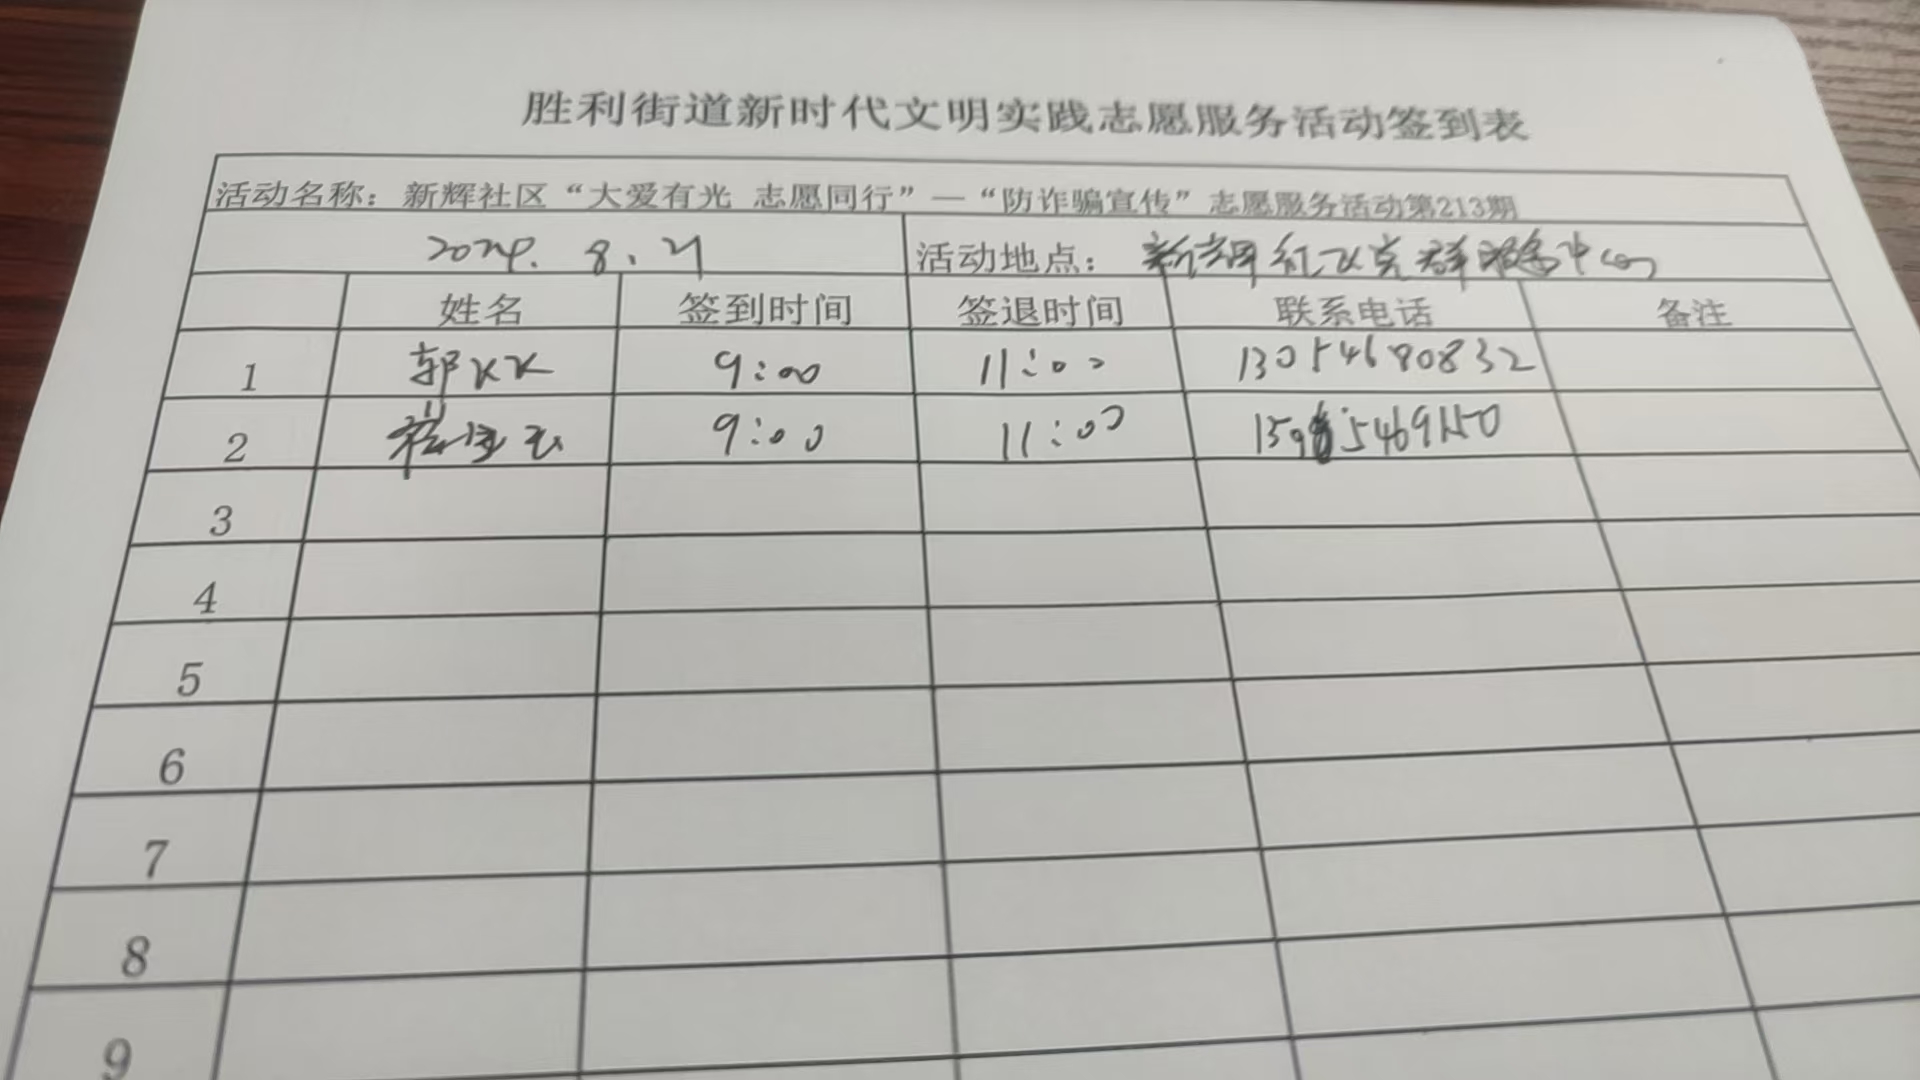 胜利街道新时代文明实践志愿服务活动签到表
活动名称：新辉社区“大爱有光 志愿同行”—“防诈骗宣传”志愿服务活动第213期
2024.8.21 活动地点：新辉红飞党群服务中心
姓名 签到时间 签退时间 联系电话 备注
1 郭 9:00 11:00 13054680832
2 9:00 11:00
3
4
5
6
7
8
9